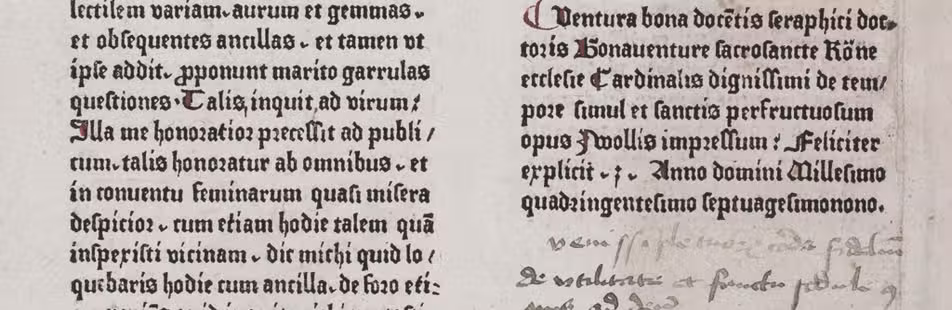 lectilem variam. aurum et gemmas.
et obsequentes ancillas. et tamen vt
ipse addit. ꝓponunt marito garrulas
questiones. Talis, inquit, ad virum:
Illa me honoratior precessit ad publi/
cum. talis honoratur ab omnibus. et
in conuentu feminarum quasi misera
despicior. cum etiam hodie talem quā
inspexisti vicinam. dic michi quid lo/
quebaris hodie cum ancilla. de foro eti:
Uentura bona docētis seraphici doc-
toris Bonauenture sacrosancte Rōne
ecclesie Cardinalis dignissimi de tem/
pore simul et sanctis perfructuosum
opus Zwollis impressum: Feliciter
explicit. Anno domini Millesimo
quadringentesimo septuagesimonono.
de et